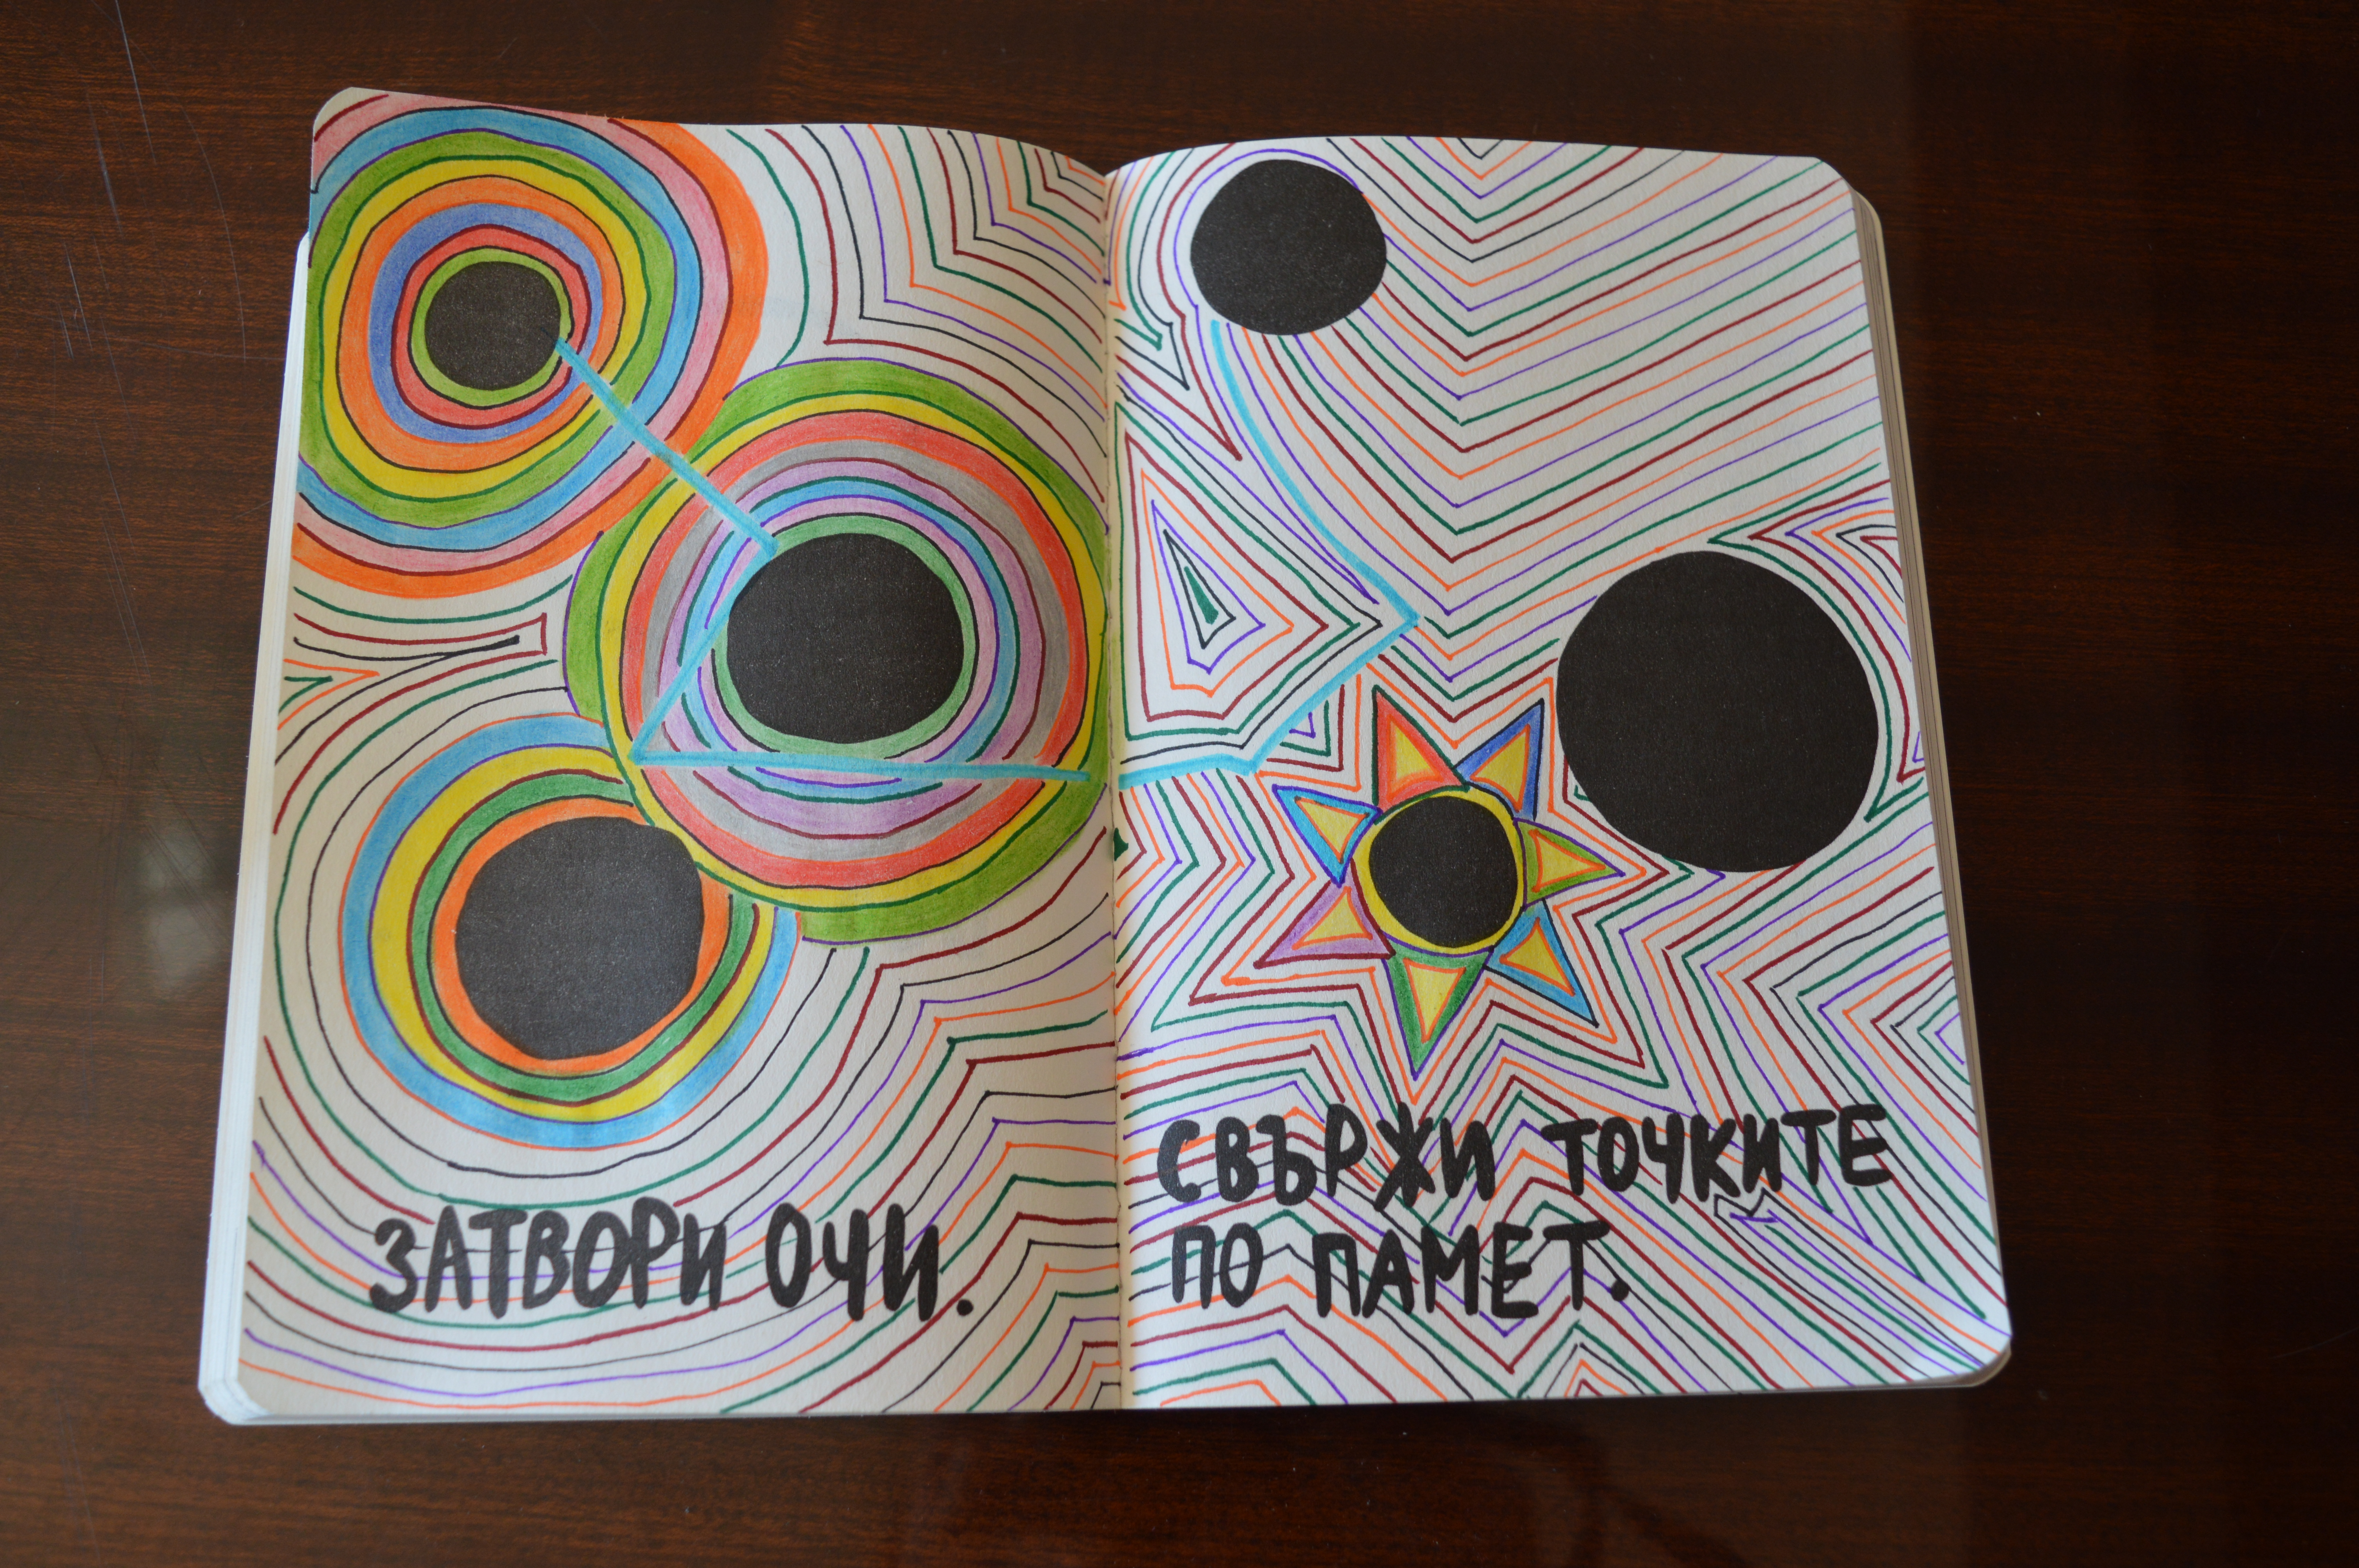 ЗАТВОРИ ОЧИ.
СВЪРЖИ ТОЧКИТЕ
ПО ПАМЕТ.